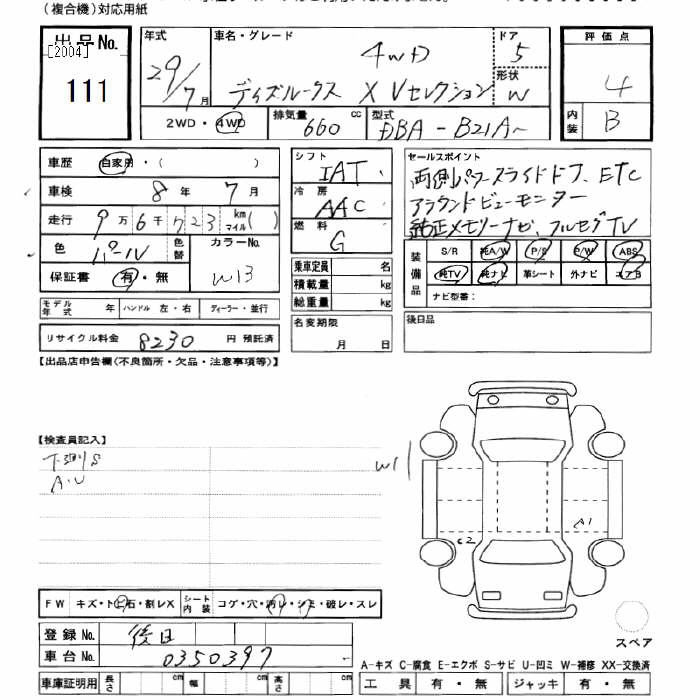 (複合機)対応用紙
出品No.
[2004]
111
年式
29/7月
車名・グレード
4WD
デイズルークス X Vセレクション
ドア
5
形状
W
評価点
4
内装
B
2WD・4WD
排気量
660 cc
型式
DBA-B21A
車歴
自家用・( )
車検
8年 7月
走行
9万6千723 km マイル( )
色
パール
色替
カラーNo.
W13
保証書
有・無
モデル年式 年
ハンドル 左・右
ディーラー・並行
リサイクル料金 8230 円 預託済
シフト
IAT
冷房
AAC
燃料
G
乗車定員 名
積載量 kg
総重量 kg
名変期限
月 日
セールスポイント
両側パワースライドドア、ETC
アラウンドビューモニター
純正メモリーナビ、フルセグTV
装備品
S/R 純A/W P/S P/W ABS
純TV 純ナビ 革シート 外ナビ エアB
ナビ型番:
後日品
【出品店申告欄(不良箇所・欠品・注意事項等)】
【検査員記入】
下廻りS
A・U
W1
A1
C2
FW キズ・トビ石・割レX
シート内装 コゲ・穴・汚レ・シミ・破レ・スレ
登録No. 後日
車台No. 0350397
車庫証明用 長さ cm 幅 cm 高さ cm
スペア
A-キズ C-腐食 E-エクボ S-サビ U-凹ミ W-補修 XX-交換済
工具 有・無 ジャッキ 有・無